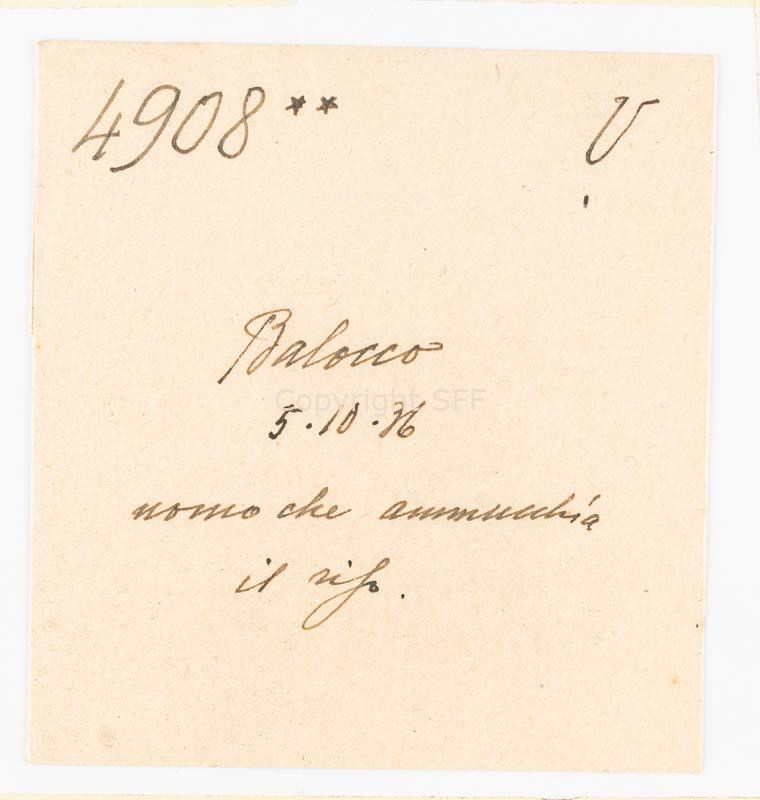 4908** V
Balocco
Copyright SFF
5.10.36
uomo che ammucchia
il riso.